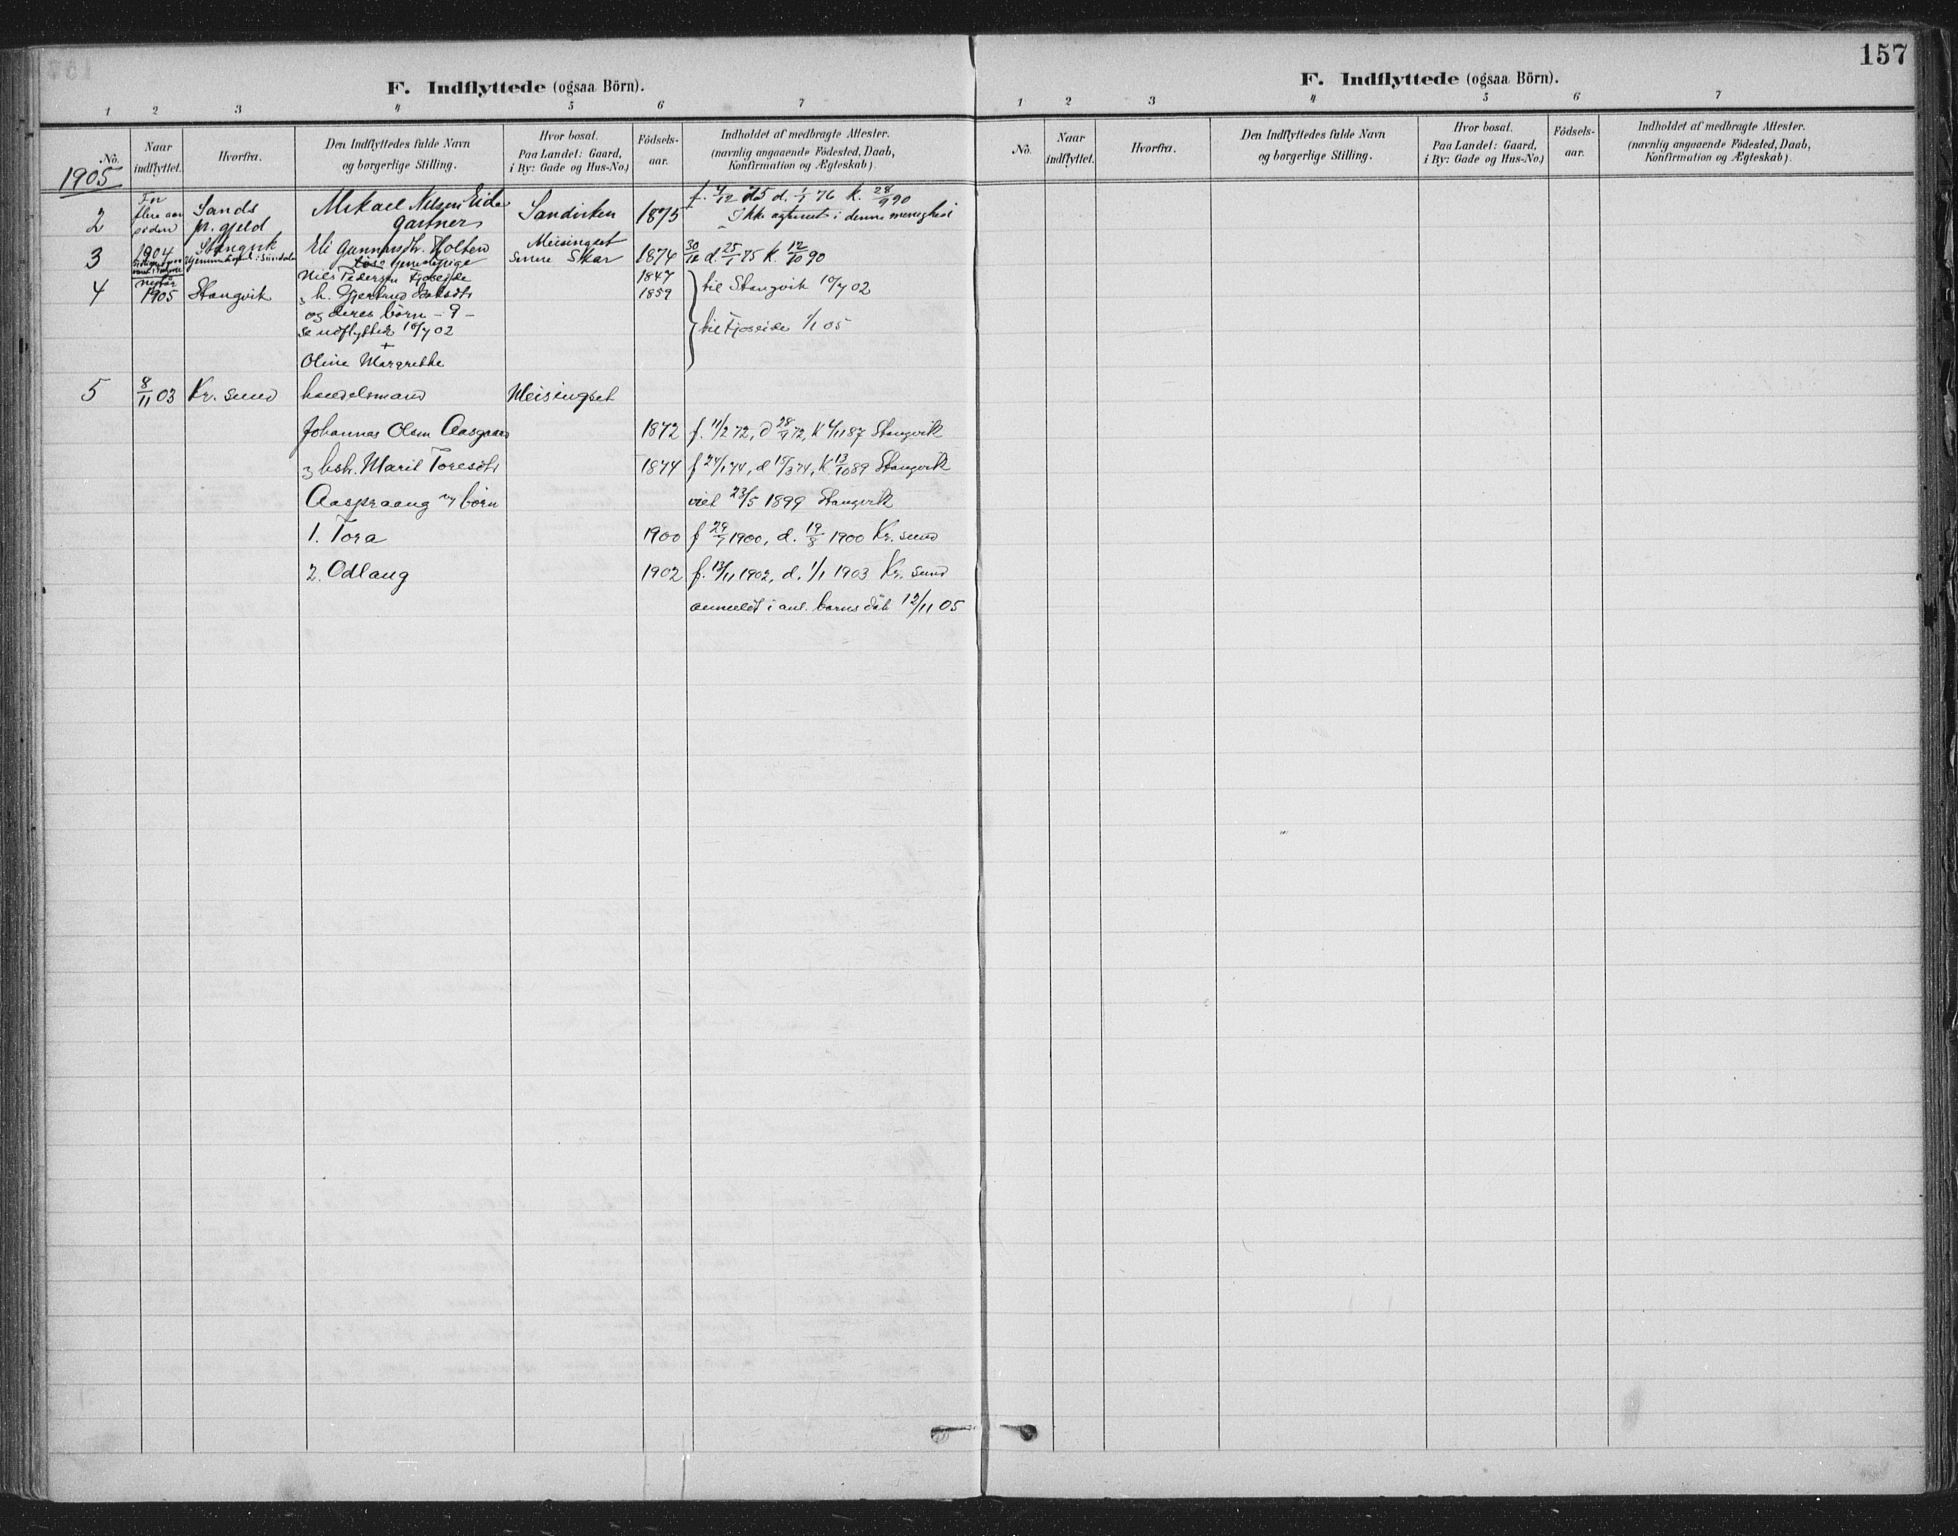 157
F. Indflyttede (ogsaa Börn).
1 2 3 4 5 6 7
No. Naar indflyttet. Hvorfra. Den Indflyttedes fulde Navn og borgerlige Stilling. Hvor bosat. Paa Landet: Gaard, i By: Gade og Hus-No.) Fødsels-aar. Indholdet af medbragte Attester. (navnlig angaaende Födested, Daab, Konfirmation og Ægteskab).
F. Indflyttede (ogsaa Börn).
1 2 3 4 5 6 7
No. Naar indflyttet. Hvorfra. Den Indflyttedes fulde Navn og borgerlige Stilling. Hvor bosat. Paa Landet: Gaard, i By: Gade og Hus-No.) Fødsels-aar. Indholdet af medbragte Attester. (navnlig angaaende Födested, Daab, Konfirmation og Ægteskab).
1905
2 For flere aar siden Sands pr.gjeld Mikael Nilsen Eide 1875 f. 9/12 75 d. 1/1 76 k. 28/9 90
gartner Ikke i denne menighed
3 1904 Stangvik Eli Gunnarsdtr. Holten Meisingset 1874 30/10 d. 25/1 75 k. 12/10 90
Skar
Nils Pedersen Fjøseide 1847
4 nytår 1905 Stangvik h. Gjertrud 1859 til Stangvik 10/7 02
og deres börn - 9 -
se udflyttede 10/7 02 til Fjøseide 1/1 05
+
Oline Margrethe
5 8/11 03 Kr. sund handelsmand Meisingset
Johannes Olsen Aasgaard 1872 f. 11/2 72, d 28/4 72, K 4/11 87 Stangvik
hstr. Marit Toresdtr 1874 f 24/1 74, d 15/3 74, K. 13/10 89 Stangvik
og börn viet 23/5 1899 Stangvik
1. Tora 1900 f 29/7 1900, d. 19/8 1900 Kr. sund
2. Odlaug 1902 f. 13/11 1902, d. 1/1 1903 Kr. sund
anmeldt i anl. barns dåb 12/11 05